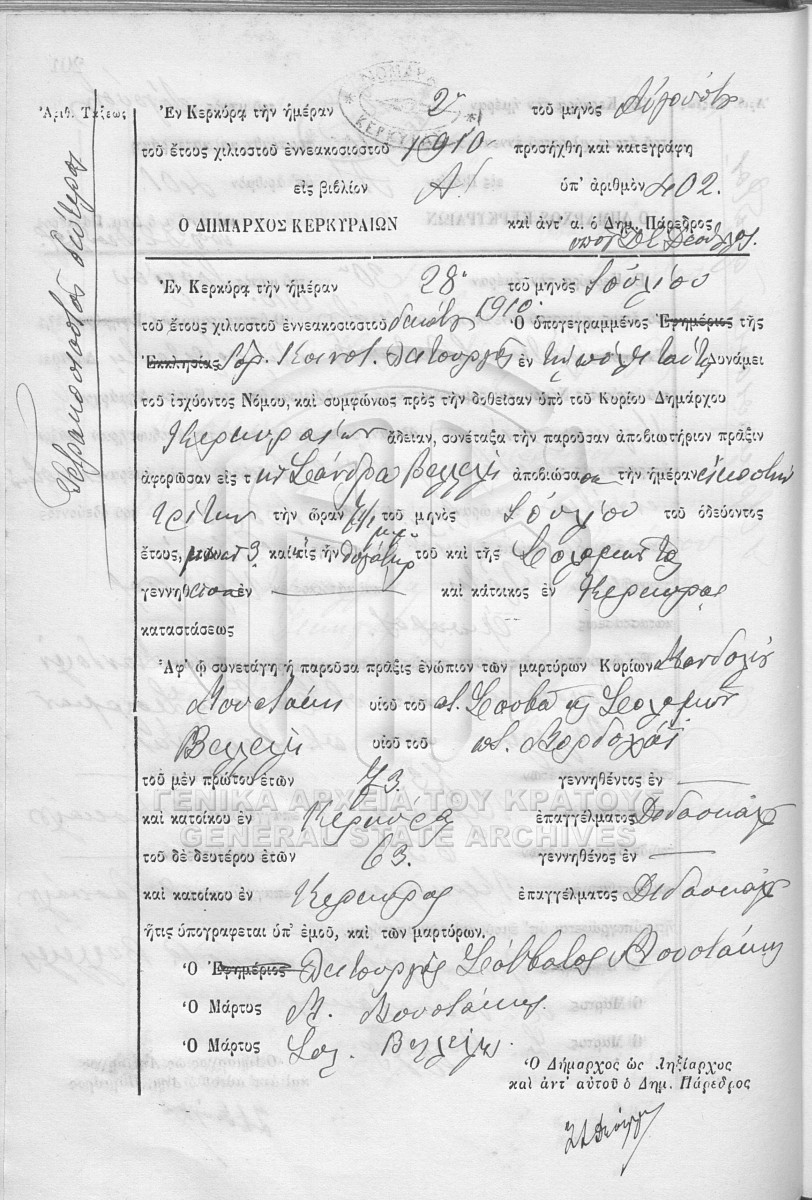 Ἀριθ. Τάξεως
Τετρακοσιοστὸς δεύτερος
ΝΟΜΑΡΧ
ΚΕΡΚΥΡΑ
Ἐν Κερκύρᾳ τὴν ἡμέραν 2αν τοῦ μηνὸς Αὐγούστου
τοῦ ἔτους χιλιοστοῦ ἐννεακοσιοστοῦ 1910 προσήχθη καὶ κατεγράφη
εἰς βιβλίον Α! ὑπ' ἀριθμὸν 402.
Ὁ ΔΗΜΑΡΧΟΣ ΚΕΡΚΥΡΑΙΩΝ καὶ ἀντ' α. ὁ Δημ. Πάρεδρος
Ἐν Κερκύρᾳ τὴν ἡμέραν 28 τοῦ μηνὸς Ἰουλίου
τοῦ ἔτους χιλιοστοῦ ἐννεακοσιοστοῦ δεκάτου 1910. Ὁ ὑπογεγραμμένος Ἐφημέριος τῆς
Ἐκκλησίας Ἰσρ. Κοινοτ. Λειτουργὸς ἐν τῇ πόλει ταύτῃ Δυνάμει
τοῦ ἰσχύοντος Νόμου, καὶ συμφώνως πρὸς τὴν δοθεῖσαν ὑπὸ τοῦ Κυρίου Δημάρχου
Κερκυραίων ἄδειαν, συνέταξα τὴν παροῦσαν ἀποβιωτήριον πρᾶξιν
ἀφορῶσαν εἰς τὴν Σάνδρα Βελλέλη ἀποβιώσασαν τὴν ἡμέραν εἰκοστὴν
τρίτην τὴν ὥραν τοῦ μηνὸς Ἰουλίου τοῦ ὁδεύοντος
ἔτους, 3 καὶ τίς ἦν θυγάτηρ τοῦ καὶ τῆς Σολομῶντος
γεννηθεῖσα ἐν καὶ κάτοικος ἐν Κερκύρας
καταστάσεως
Ἀφ' ᾧ συνετάγη ἡ παροῦσα πρᾶξις ἐνώπιον τῶν μαρτύρων Κυρίων Μανδολίν
Μουστάκη υἱοῦ τοῦ ποτ. Σαββᾶ κ Σολομὼν
Βελλέλη υἱοῦ τοῦ ποτ. Μορδοχάϊ
τοῦ μὲν πρώτου ἐτῶν 73. γεννηθέντος ἐν
καὶ κατοίκου ἐν Κερκύρᾳ ἐπαγγέλματος Διδασκάλου
τοῦ δὲ δευτέρου ἐτῶν 63. γεννηθένος ἐν
καὶ κατοίκου ἐν Κερκύρας ἐπαγγέλματος Διδασκάλου
ἥτις ὑπογράφεται ὑπ' ἐμοῦ, καὶ τῶν μαρτύρων.
Ὁ Ἐφημέριος Λειτουργὸς Σάββατος Μουστάκης
Ὁ Μάρτυς Μ. Μουστάκης.
Ὁ Μάρτυς Σολ. Βελλέλης.
Ὁ Δήμαρχος ὡς ληξίαρχος
καὶ ἀντ' αὐτοῦ ὁ Δημ. Πάρεδρος
ΓΕΝΙΚΑ ΑΡΧΕΙΑ ΤΟΥ ΚΡΑΤΟΥΣ
GENERAL STATE ARCHIVES